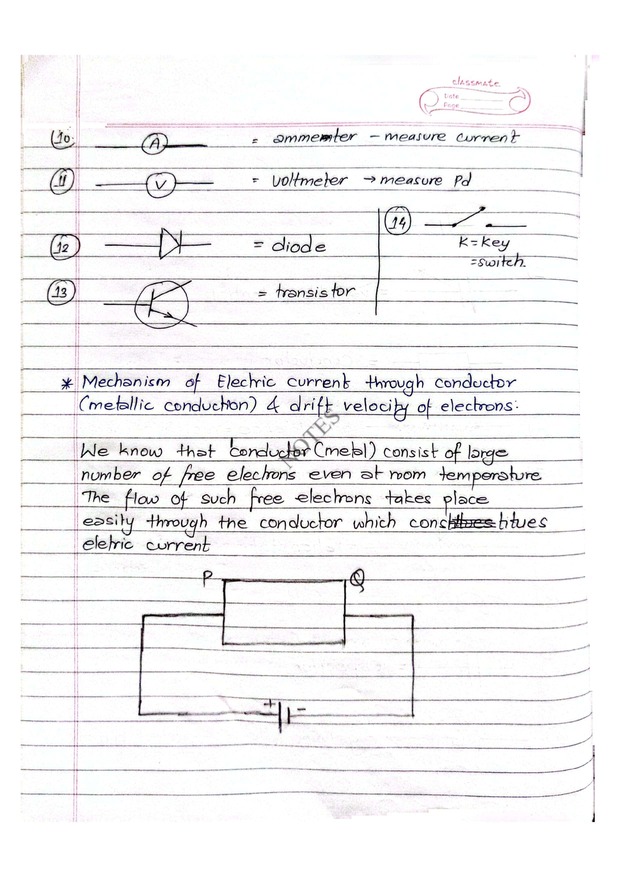 classmate
Date
Page
10. A = ammemter - measure current
11 V = voltmeter → measure Pd
12 = diode
13 = transistor
14
K = Key
= switch.
* Mechanism of Electric current through conductor
(metallic conduction) & drift velocity of electrons:
We know that conductor (metal) consist of large
number of free electrons even at room temperature
The flow of such free electrons takes place
easily through the conductor which constitues
eletric current
NOTES
P Q
+ -